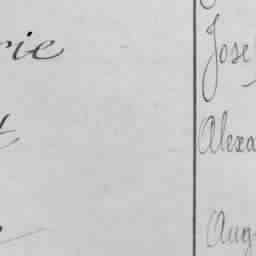 rie Jose
t Alexa
Aug